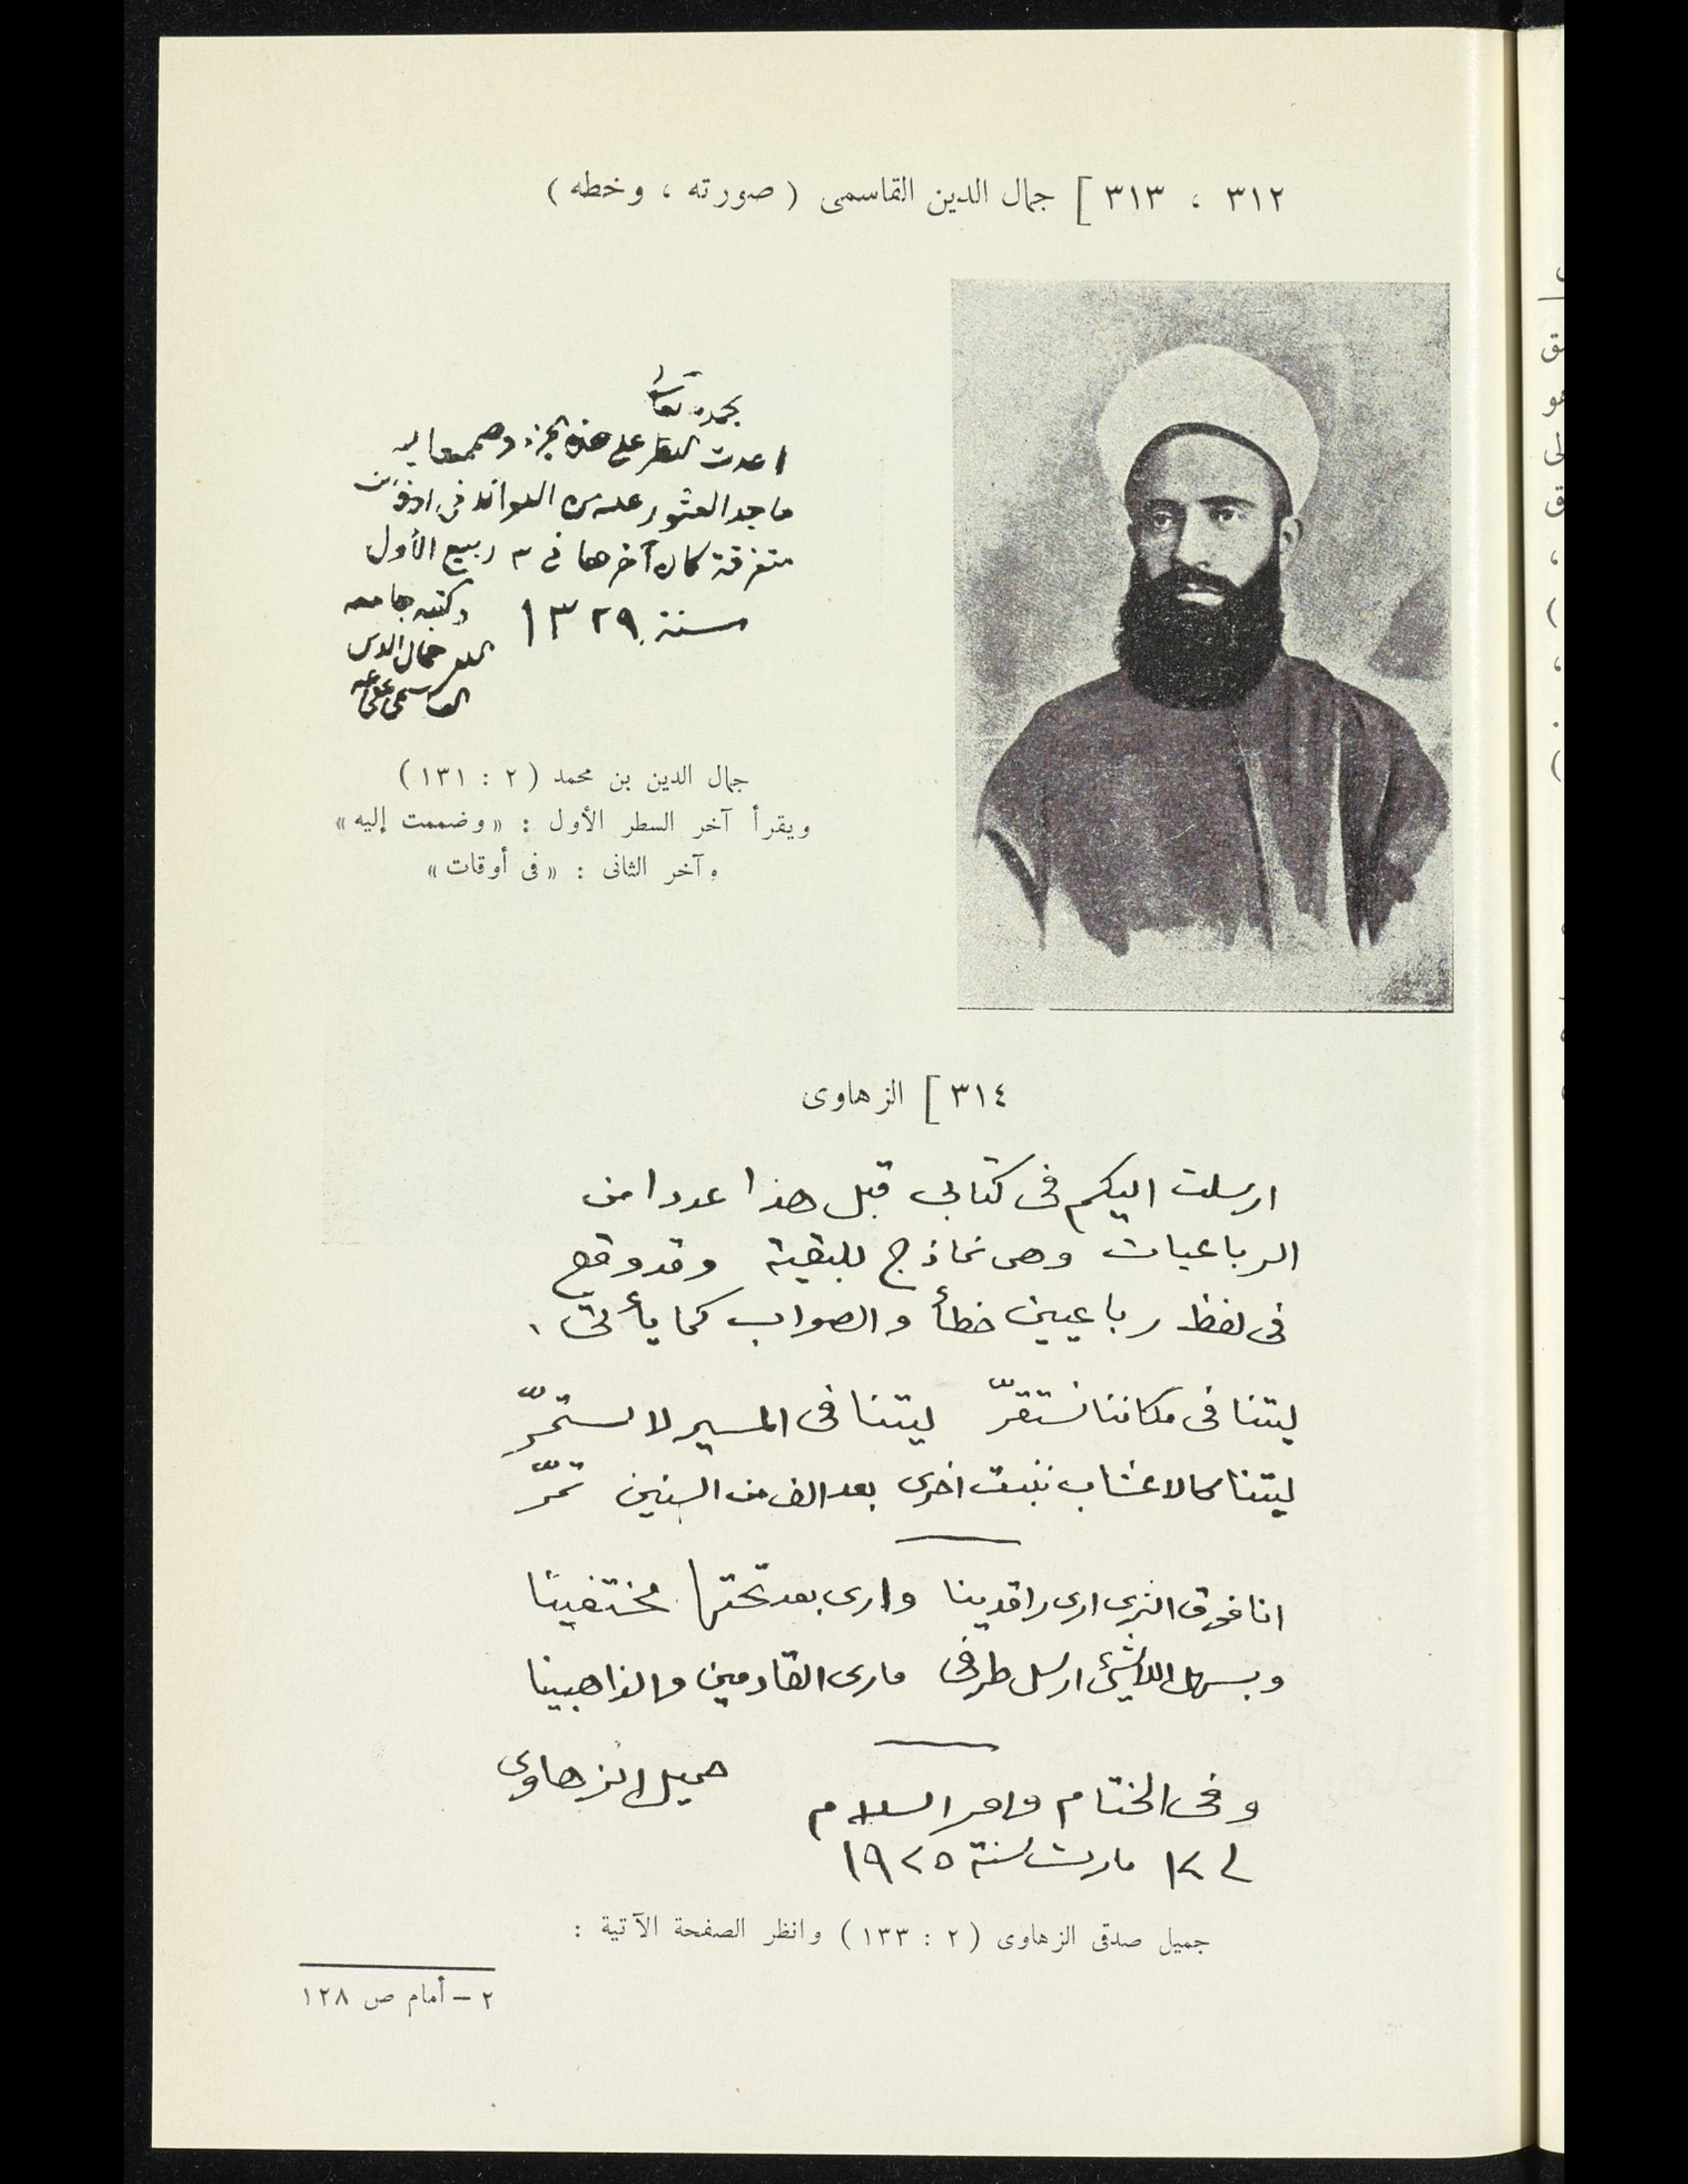 ٣١٢ ، ٣١٣ ] جمال الدين القاسمى ( صورته ، وخطه )
بحمده تعالى
اعدت النظر على هذه الجزء وضممت اليه
ما جد العثور عليه من الفوائد فى اوقات
متفرقة كان آخرها فى ٣ ربيع الأول
سنة ١٣٢٩
وكتبه جامعه
الفقير جمال الدين
القاسمى عفى عنه
جمال الدين بن محمد ( ٢ : ١٣١ )
ويقرأ آخر السطر الأول : «وضممت إليه»
وآخر الثانى : «فى أوقات»
٣١٤ ] الزهاوى
ارسلت اليكم فى كتابى قبل هذا عددا من
الرباعيات وهى نماذج للبقية وقد وقع
فى لفظ رباعيين خطأ والصواب كما يأتى .
ليتنا فى مكاننا نستقرّ ليتنا فى المسير لا نستمرّ
ليتنا كالاعشاب ننبت اخرى بعد الف من السنين تمرّ
انا فوق الثرى ارى راقدينا وارى بعد تحتها مختفينا
وبسهل اللاشئ ارسل طرفى فارى القادمين والذاهبينا
وفى الختام وافر السلام
جميل الزهاوى
فى ١٢ مارت سنة ١٩٢٥
جميل صدقى الزهاوى ( ٢ : ١٣٣ ) وانظر الصفحة الآتية :
٢ – أمام ص ١٢٨